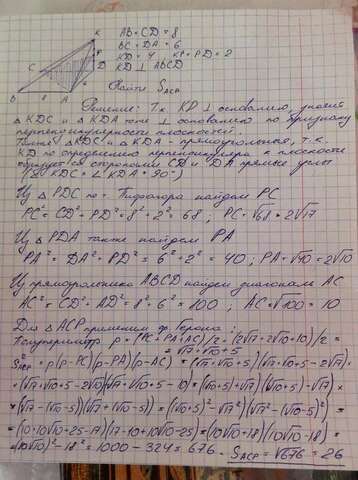 AB = CD = 8
BC = DA = 6
KD = 4 KP = PD = 2
KD ⊥ ABCD
Найти S_ACP
K
P
D
C
B 8 A
Решение: Т.к KD ⊥ основанию, значит
△KDC и △KDA тоже ⊥ основанию по признаку
перпендикулярности плоскостей.
Также △KDC и △KDA - прямоугольные, т.к
KD по определению перпендикуляра к плоскости
образует со сторонами CD и DA прямые углы
(∠KDC = ∠KDA = 90°)
Из △PDC по т. Пифагора найдем PC
PC² = CD² + PD² = 8² + 2² = 68; PC = √68 = 2√17
Из △PDA также найдем PA
PA² = DA² + PD² = 6² + 2² = 40; PA = √40 = 2√10
Из прямоугольника ABCD найдем диагональ AC
AC² = CD² + AD² = 8² + 6² = 100; AC = √100 = 10
Для △ACP применим ф. Герона:
Полупериметр p = (PC+PA+AC)/2 = (2√17+2√10+10)/2 =
= √17+√10+5
S²_ACP = p(p-PC)(p-PA)(p-AC) = (√17+√10+5)(√17+√10+5-2√17)×
×(√17+√10+5-2√10)(√17+√10+5-10) = (√10+5+√17)(√10+5)-√17)×
×(√17-(√10-5))(√17+(√10-5)) = ((√10+5)²-√17²)(√17²-(√10-5)²) =
= (10+10√10+25-17)(17-10+10√10-25) = (10√10+18)(10√10-18) =
= (10√10)²-18² = 1000-324 = 676. S_ACP = √676 = 26